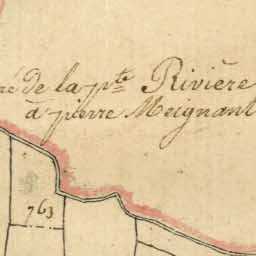 ré de la pte Rivière
à pierre Meignant
763